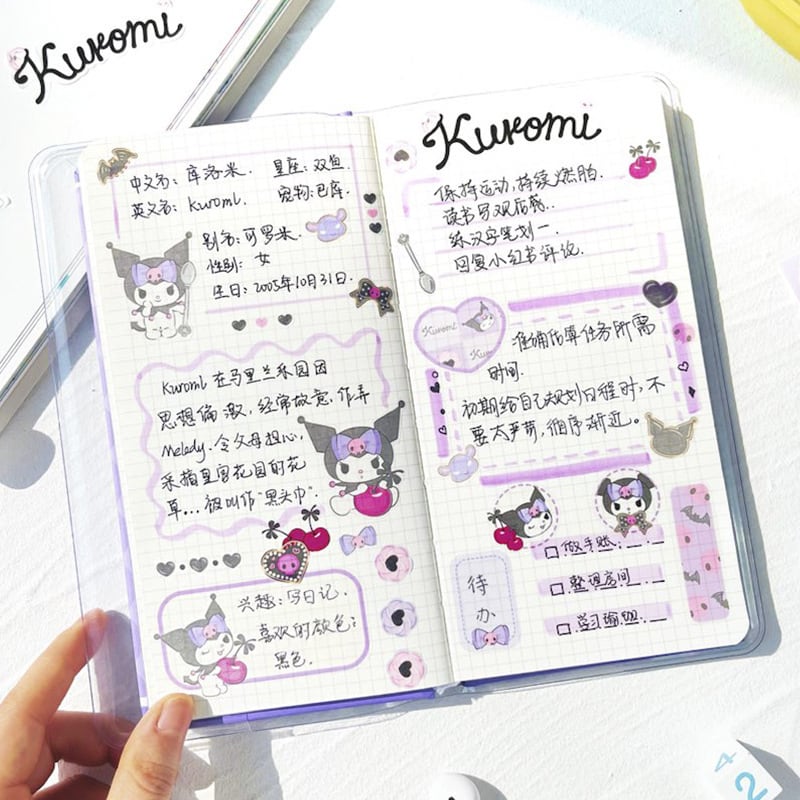 Kuromi
中文名：库洛米.
星座：双鱼
英文名：kuromi.
宠物：巴库.
别名：可罗米.
性别：女
生日：2005年10月31日.
Kuromi 在马里兰乐园因
思想偏激，经常故意.作弄
Melody.令父母担心，
采摘皇宫花园的花
草...被叫作“黑头巾”.
兴趣：写日记.
喜欢的颜色：
黑色.
Kuromi
保持运动，持续燃脂.
读书写观后感..
练汉字笔划一.
回复小红书评论.
Kuromi
Kuromi
准确估算任务所需
时间.
初期给自己规划日程时，不
要太严苛，循序渐近。
待办
做手账.
整理房间
学习瑜珈
4
2